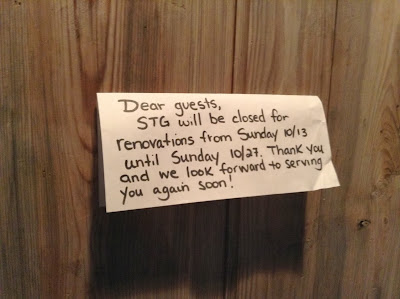 Dear guests,
STG will be closed for
renovations from Sunday 10/13
until Sunday 10/27. Thank you
and we look forward to serving
you again soon!